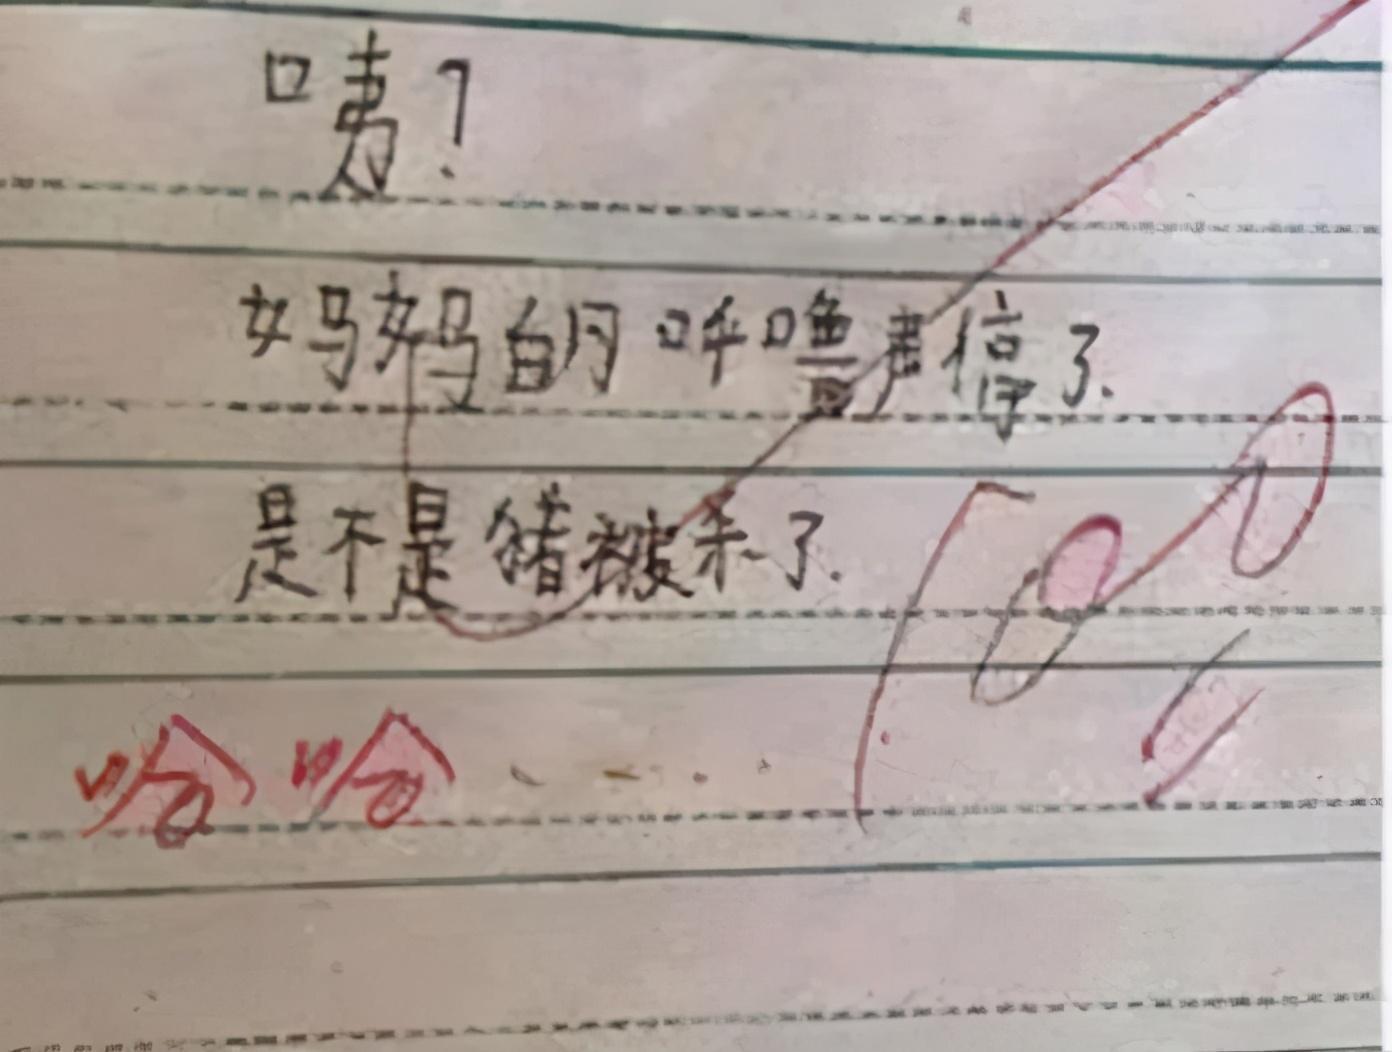 咦?
妈妈的呼噜声停了.
是不是猪被杀了.
100
哈哈